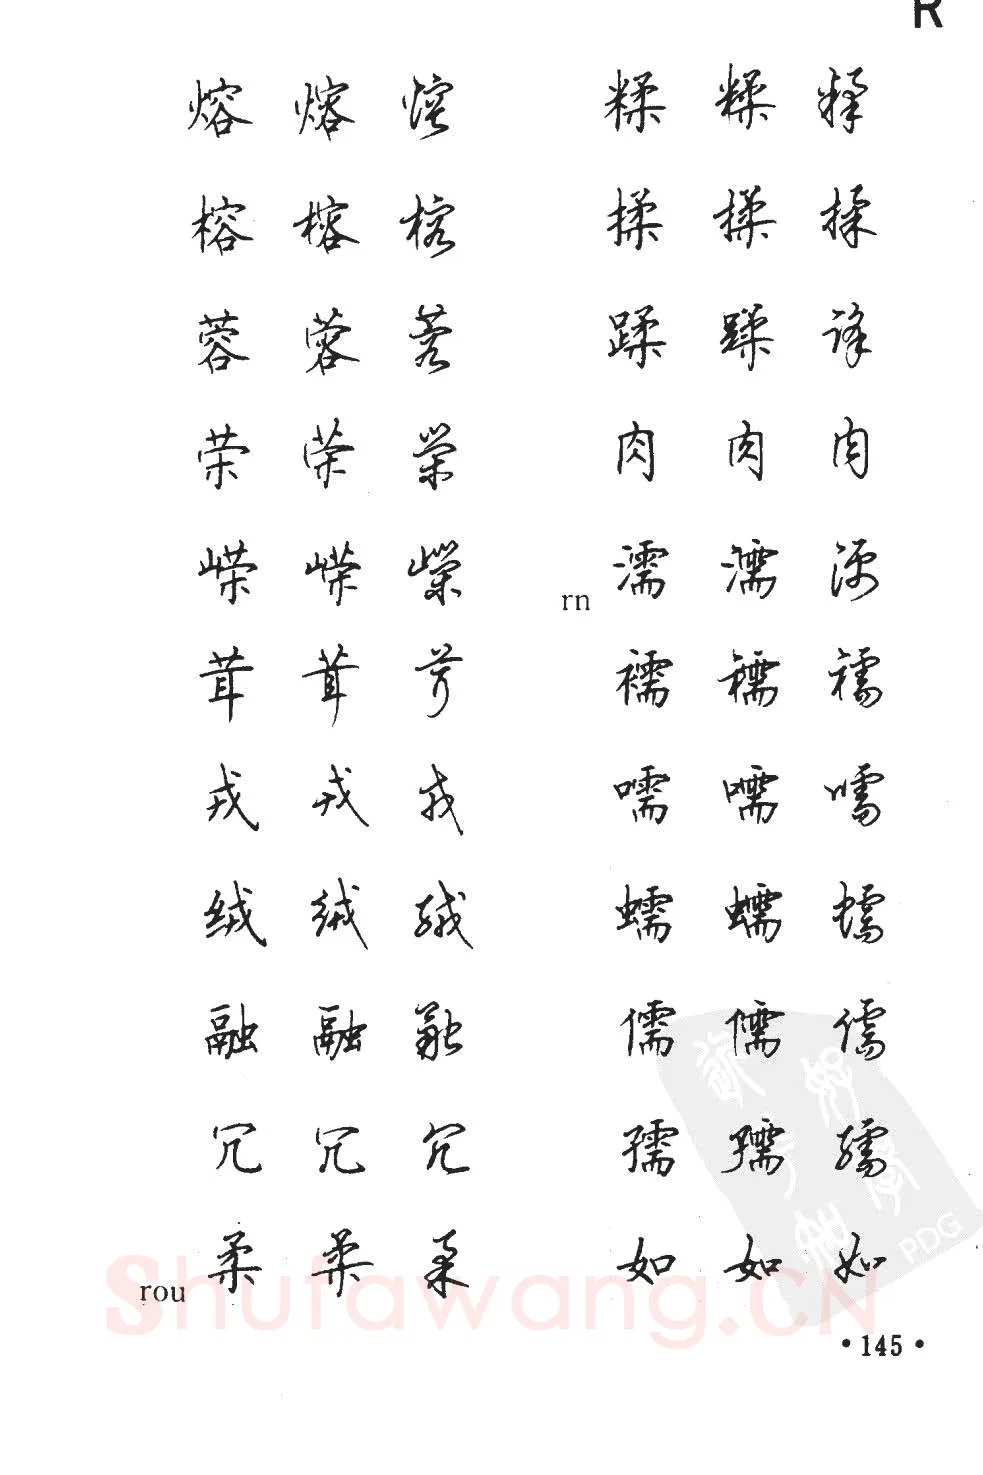 R
熔 熔 熔 糅 糅 糅
榕 榕 榕 揉 揉 揉
蓉 蓉 蓉 蹂 蹂 蹂
荣 荣 荣 肉 肉 肉
嵘 嵘 嵘 rn 濡 濡 濡
茸 茸 茸 襦 襦 襦
戎 戎 戎 嚅 嚅 嚅
绒 绒 绒 蠕 蠕 蠕
融 融 融 儒 儒 儒
冗 冗 冗 孺 孺 孺
rou 柔 柔 柔 如 如 如
Shufawang.CN
PDG
·145·